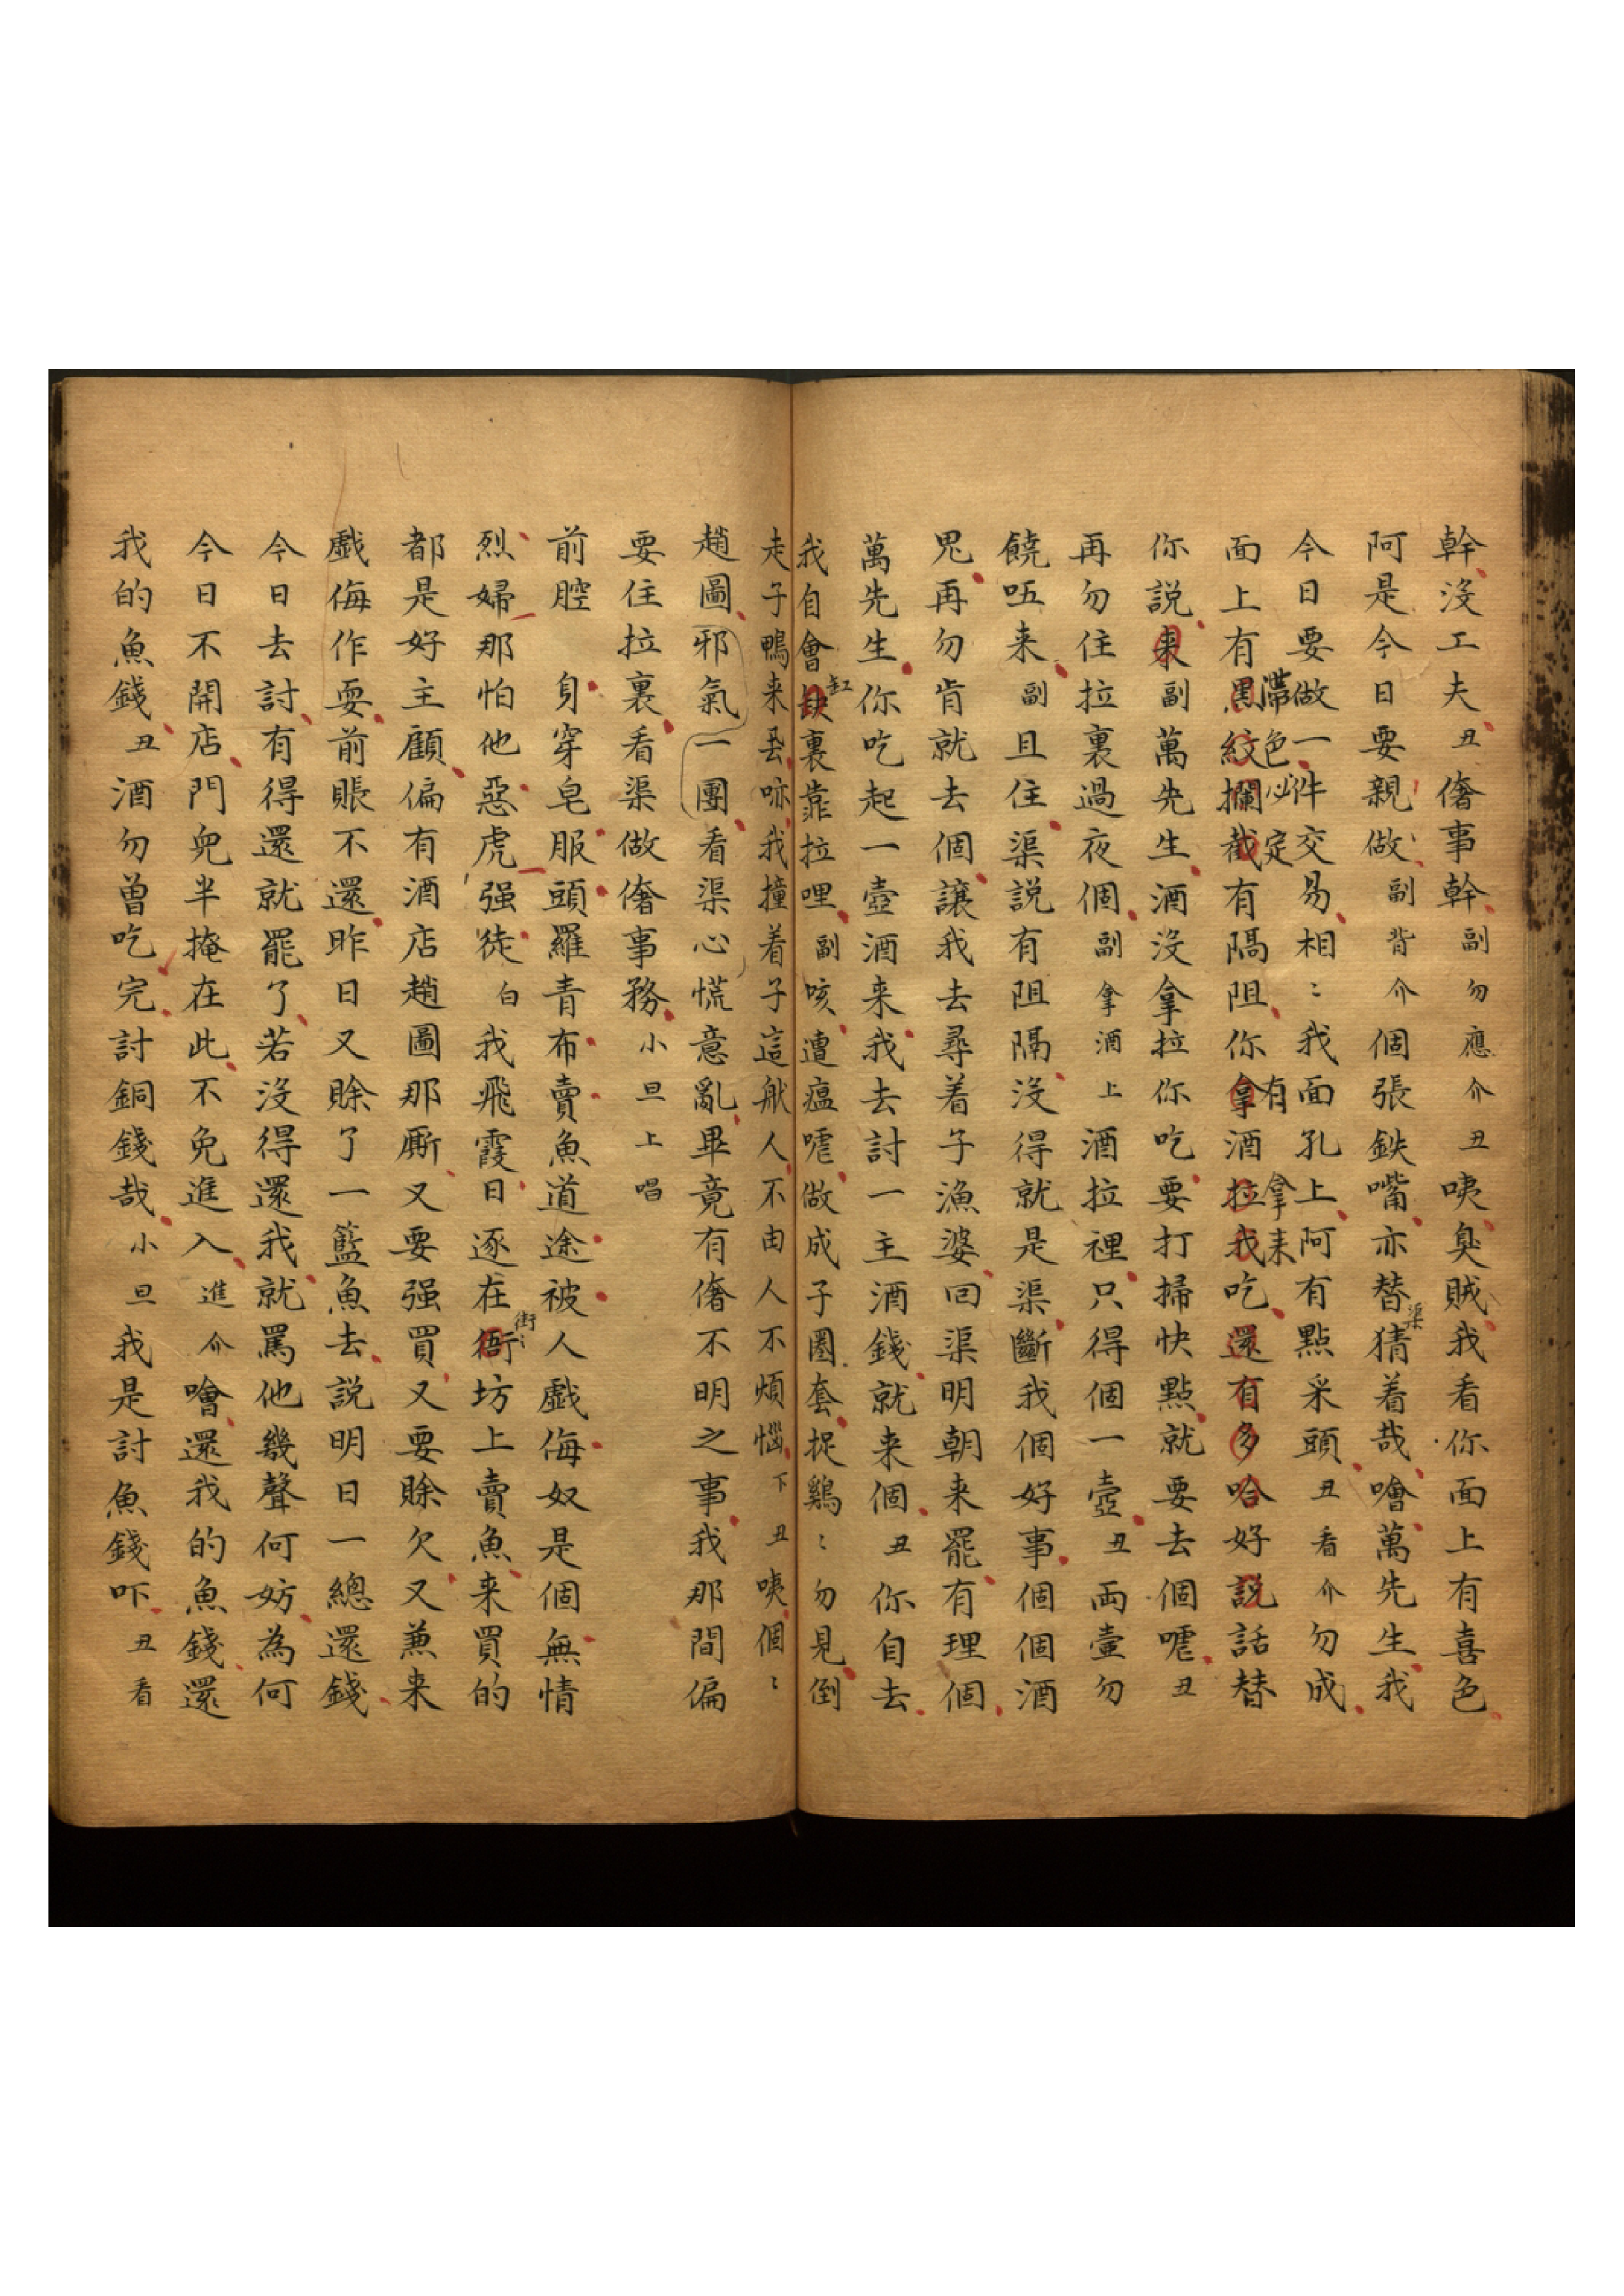 幹沒工夫丑奢事幹副勿應介丑咦臭賊我看你面上有喜色
阿是今日要親做副背介個張鉄嘴亦替渠猜着哉噲萬先生我
今日要做一件交易相〻我面孔上阿有點采頭丑看介勿成
面上有黑紋攔截有隔阻你拿酒拉我吃還有多哈好說話替
滯色必定有拿来
你說来副萬先生酒沒拿拉你吃要打掃快點就要去個嘘丑
再勿住拉裏過夜個副拿酒上酒拉裡只得個一壺丑両壺勿
饒㕶来副且住渠説有阻隔沒得就是渠斷我個好事個個酒
鬼再勿肯就去個讓我去尋着子漁婆回渠明朝来罷有理個
萬先生你吃起一壺酒来我去討一主酒錢就来個丑你自去
我自會缸裏靠拉哩副咳遭瘟嘘做成子圈套捉鷄〻勿見倒
走子鴨来我撞着子這般人不由人不煩惱下丑咦個〻
趙圖邪氣一團看渠心慌意亂畢竟有奢不明之事我那間偏
要住拉裏看渠做奢事務小旦上唱
前腔身穿皂服頭羅青布賣魚道途被人戲侮奴是個無情
烈婦那怕他惡虎强徒白我飛霞日逐在街〻坊上賣魚来買的
都是好主顧偏有酒店趙圖那厮又要强買又要賒欠又兼来
戲侮作耍前賬不還昨日又賒了一籃魚去説明日一總還錢
今日去討有得還就罷了若沒得還我就罵他幾聲何妨為何
今日不開店門兒半掩在此不免進入進介噲還我的魚錢還
我的魚錢丑酒勿曽吃完討銅錢哉小旦我是討魚錢吓丑看